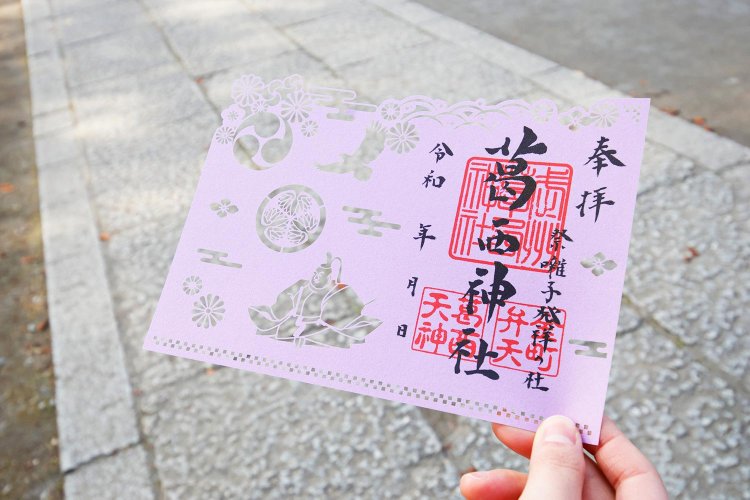 奉拝
祭囃子発祥の社
葛西神社
令和 年 月 日
葛西
天神
金町
弁天